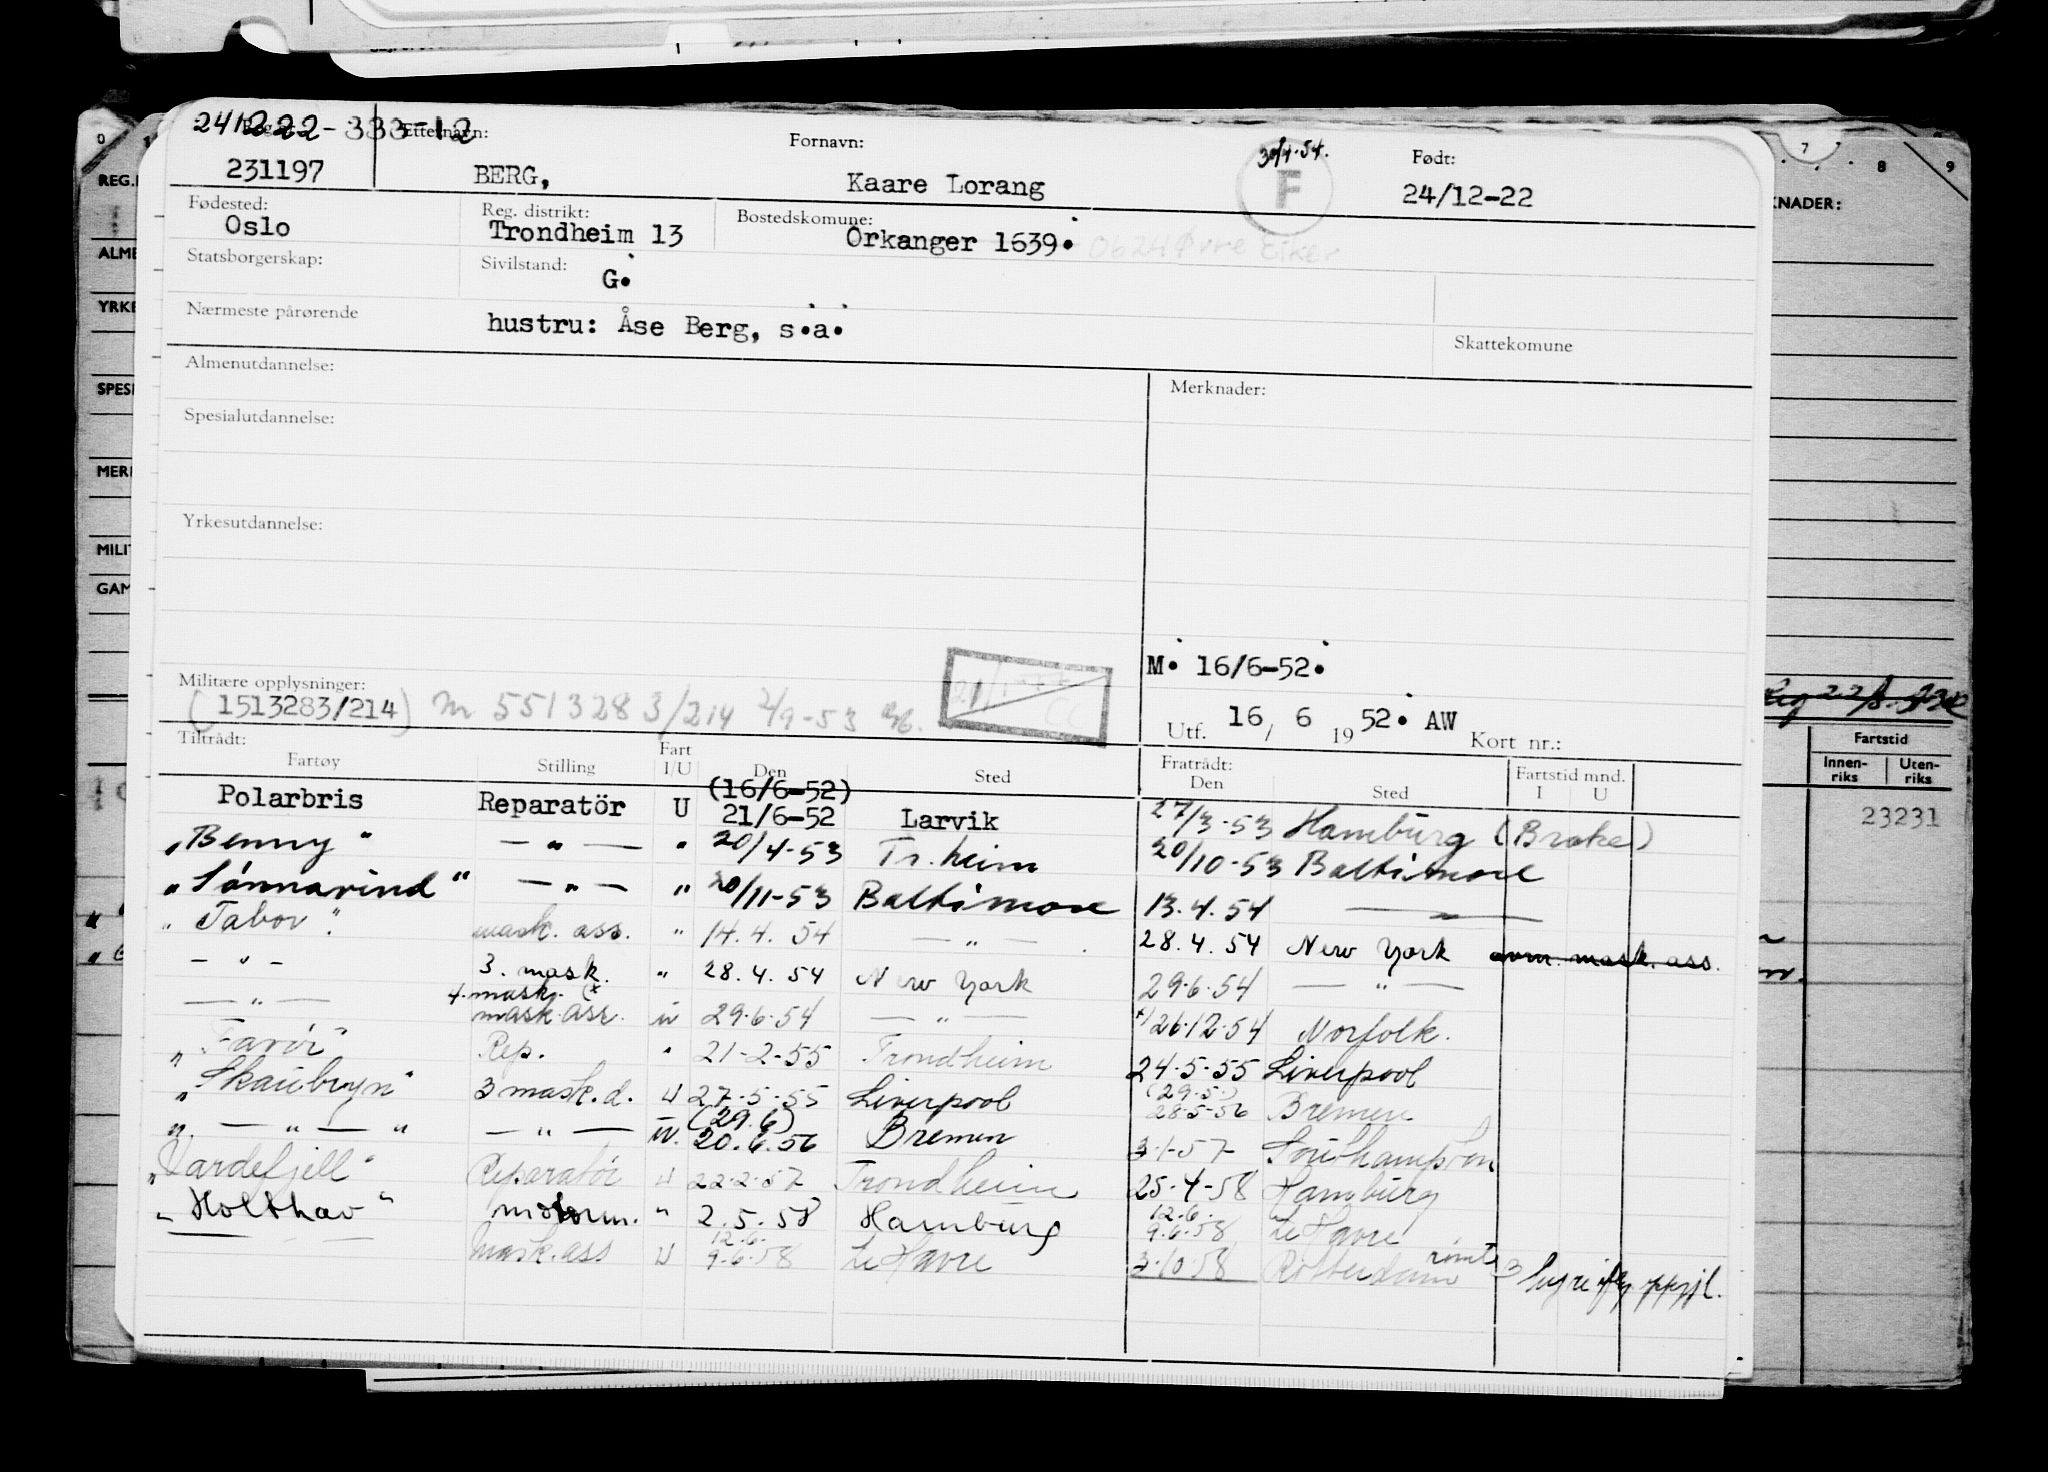 241222-333-12 Etternavn: Fornavn: 30/4-54. Født:
231197 BERG, Kaare Lorang F 24/12-22
Fødested: Reg. distrikt: Bostedskomune:
Oslo Trondheim 13 Orkanger 1639. 0624 Øvre Eiker
Statsborgerskap: Sivilstand:
G.
Nærmeste pårørende hustru: Åse Berg, s.a. Skattekomune
Almenutdannelse: Merknader:
Spesialutdannelse:
Yrkesutdannelse:
M. 16/6-52.
Militære opplysninger:
(1513283/214) m 5513283/214 2/9-53
Utf. 16 / 6 1952. AW Kort nr.:
Tiltrådt: Fratrådt:
Fartøy Stilling Fart I/U Den Sted Den Sted Fartstid mnd. I U
Polarbris Reparatör U (16/6-52) 21/6-52 Larvik 27/3-53 Hamburg (Brake)
"Benny" — " — " 20/4-53 Tr.heim 20/10-53 Baltimore
"Sönnavind" — " — " 20/11-53 Baltimore 13.4.54 — " —
"Tabor" mask. ass. " 14.4.54 — " — 28.4.54 New York avm. mask. ass.
— " — 3. mask. " 28.4.54 New York 29.6.54 — " —
— " — 4. mask. (x mask. ass. u 29.6.54 — " — x) 26.12.54 Norfolk.
" Favör" Rep. " 21-2-55 Trondheim 24-5-55 Liverpool
"Skaubryn" 3 mask.d. U 27-5-55 Liverpool (29.5.) 28-5-56 Bremen
" — " — " — " — u. (29.6) 20.6.56 Bremen 3-1-57 Southampton
"Vardefjell" Reparatör U 22-2-57 Trondheim 25-4-58 Hamburg
"Holthav" motorm. " 2.5.58 Hamburg 12.6. 9.6.58 Le Havre
— — — Mask.ass U 12.6. 9.6.58 Le Havre 3.10 58 Rotterdam römt
REG.
ALME
YRKE
SPES
MERK
MILIT
GAM
KNADER:
7 8 9
Fartstid
Innenriks Utenriks
23231